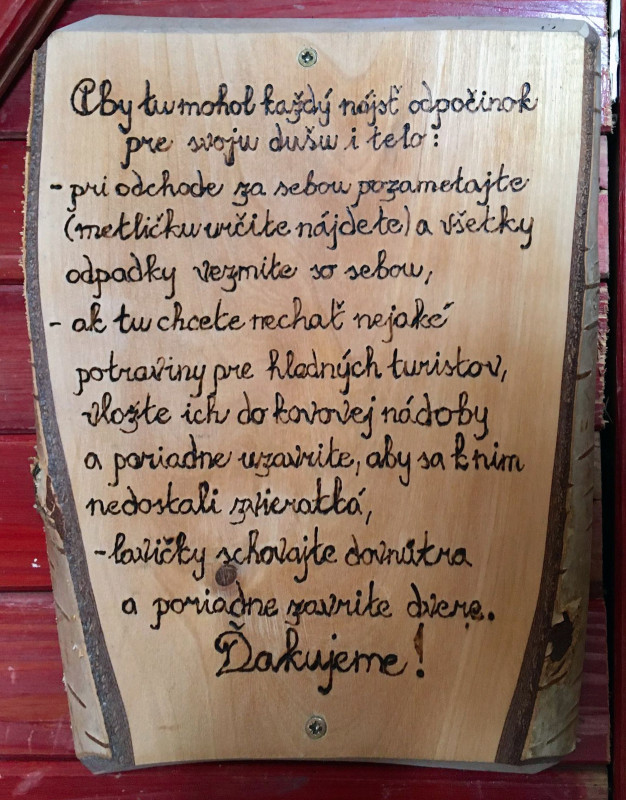 Aby tu mohol každý nájsť odpočinok
pre svoju dušu i telo:
- pri odchode za sebou pozametajte
(metličku určite nájdete) a všetky
odpadky vezmite so sebou,
- ak tu chcete nechať nejaké
potraviny pre hladných turistov,
vložte ich do kovovej nádoby
a poriadne uzavrite, aby sa k nim
nedostali zvieratká,
- lavičky schovajte dovnútra
a poriadne zavrite dvere.
Ďakujeme!